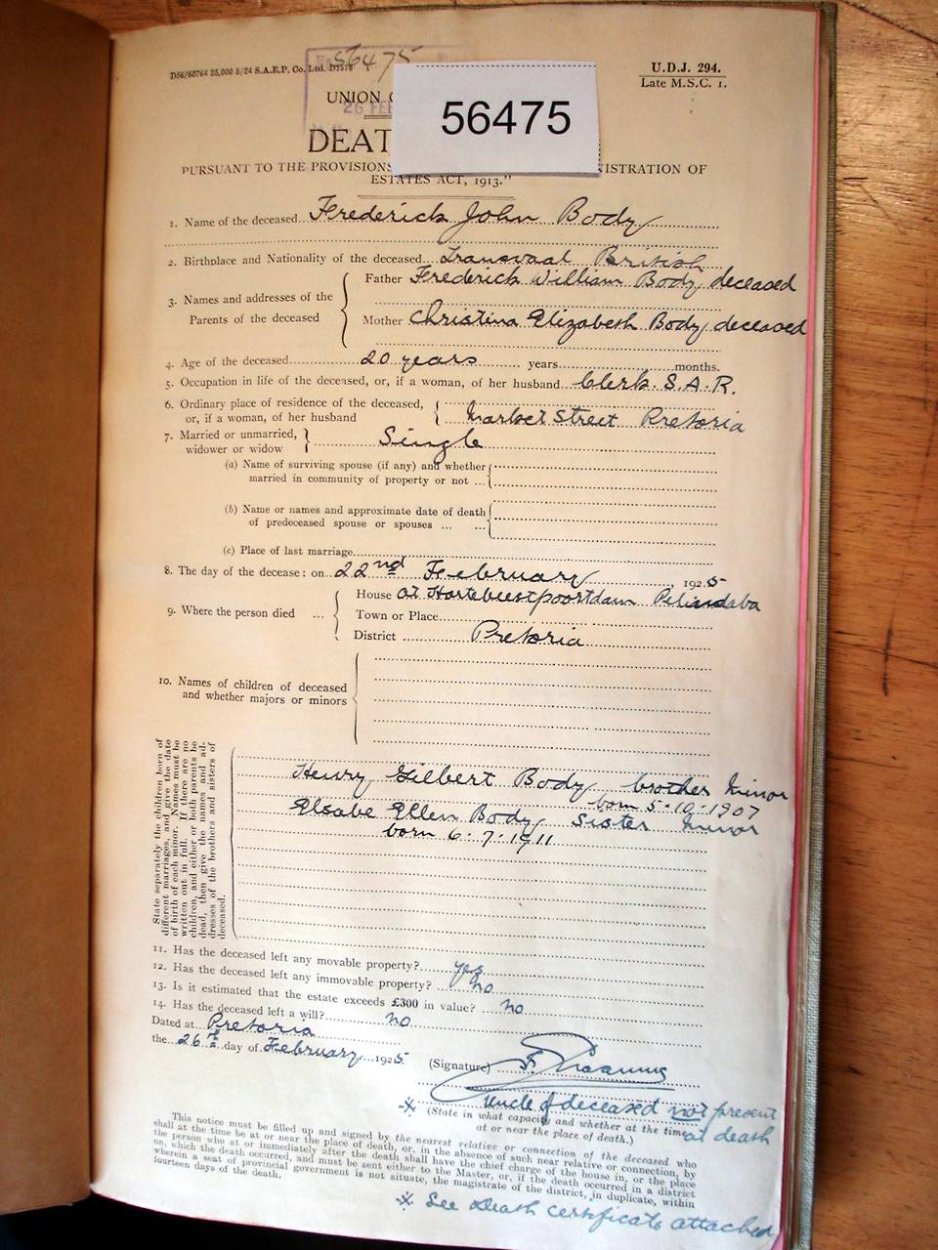 D56/60764 25,000 5/24 S.A.E.P. Co. Ltd.
56475
U.D.J. 294.
Late M.S.C. 1.
UNION
26 FE
56475
DEAT
PURSUANT TO THE PROVISIONS NISTRATION OF
ESTATES ACT, 1913."
1. Name of the deceased Frederick John Body
2. Birthplace and Nationality of the deceased Transvaal British
3. Names and addresses of the Parents of the deceased
Father Frederick William Body deceased
Mother Christina Elizabeth Body deceased
4. Age of the deceased 20 years years months.
5. Occupation in life of the deceased, or, if a woman, of her husband Clerk S.A.R.
6. Ordinary place of residence of the deceased,
or, if a woman, of her husband Market Street Pretoria
7. Married or unmarried,
widower or widow Single
(a) Name of surviving spouse (if any) and whether
married in community of property or not ...
(b) Name or names and approximate date of death
of predeceased spouse or spouses ... ...
(c) Place of last marriage
8. The day of the decease: on 22nd February, 1925
9. Where the person died ...
House at Hartebeestpoortdam Pelindaba
Town or Place
District Pretoria
10. Names of children of deceased
and whether majors or minors
State separately the children born of
different marriages, and give the date
of birth of each minor. Names must be
written out in full. If there are no
children, and either or both parents be
dead, then give the names and ad-
dresses of the brothers and sisters of
deceased.
Henry Gilbert Body brother Minor
born 5-10-1907
Elsabe Ellen Body Sister Minor
born 6-7-1911
11. Has the deceased left any movable property? yes
12. Has the deceased left any immovable property? no
13. Is it estimated that the estate exceeds £300 in value? no
14. Has the deceased left a will? no
Dated at Pretoria
the 26th day of February 1925
(Signature)
* Uncle of deceased not present
(State in what capacity and whether at the time at death
at or near the place of death.)
This notice must be filled up and signed by the nearest relative or connection of the deceased who
shall at the time be at or near the place of death, or, in the absence of such near relative or connection, by
the person who at or immediately after the death shall have the chief charge of the house in, or the place
on, which the death occurred, and must be sent either to the Master, or, if the death occurred in a district
wherein a seat of provincial government is not situate, the magistrate of the district, in duplicate, within
fourteen days of the death.
* See Death certificate attached